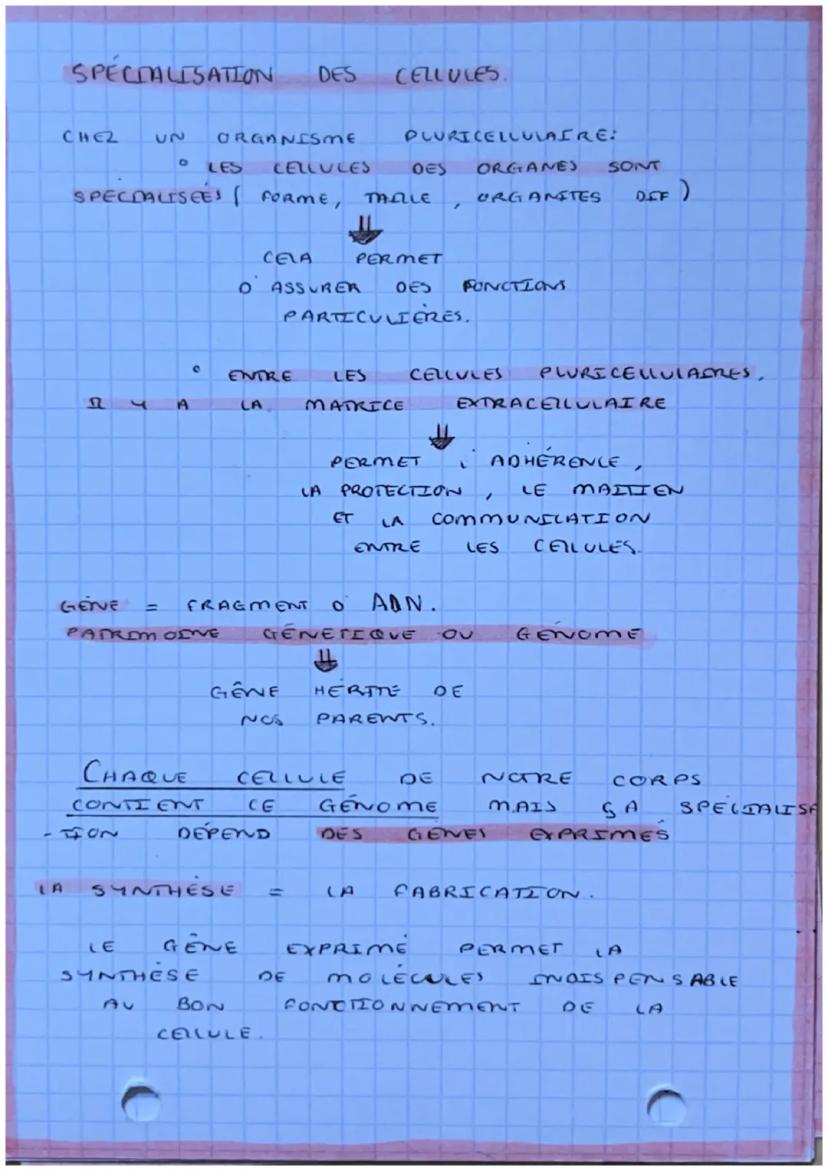 SPÉCIALISATION DES CELLULES.
CHEZ UN ORGANISME PLURICELLULAIRE:
° LES CELLULES DES ORGANES SONT
SPÉCIALISÉES ( FORME, TAILLE, ORGANITES DIF )
⇓
CELA PERMET
D'ASSURER DES FONCTIONS
PARTICULIÈRES.
° ENTRE LES CELLULES PLURICELLULAIRES,
IL Y A LA MATRICE EXTRACELLULAIRE
⇓
PERMET L'ADHÉRENCE,
LA PROTECTION, LE MAITIEN
ET LA COMMUNICATION
ENTRE LES CELLULES.
GÈNE = FRAGMENT D'ADN.
PATRIMOINE GÉNÉTIQUE OU GÉNOME
⇓
GÊNE HÉRITÉ DE
NOS PARENTS.
CHAQUE CELLULE DE NOTRE CORPS
CONTIENT CE GÉNOME MAIS SA SPÉCIALISA
-TION DÉPEND DES GÈNES EXPRIMÉS
LA SYNTHÈSE = LA FABRICATION.
LE GÊNE EXPRIMÉ PERMET LA
SYNTHÈSE DE MOLÉCULES INDISPENSABLE
AU BON FONCTIONNEMENT DE LA
CELLULE.